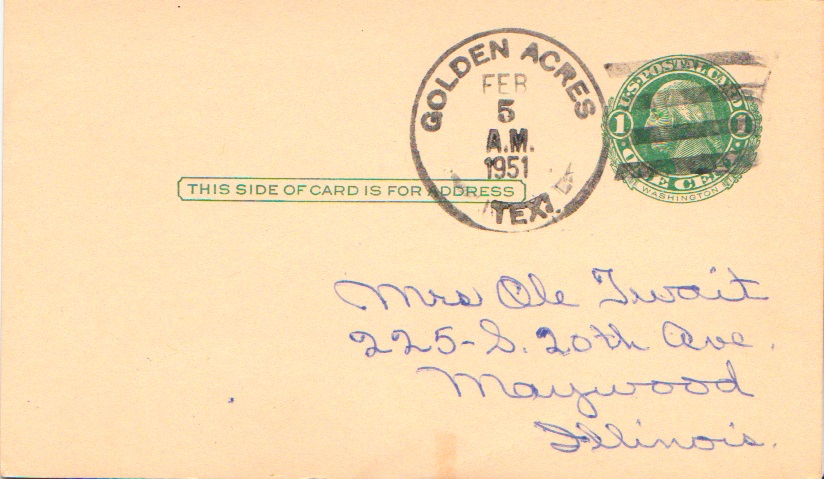 GOLDEN ACRES
FEB
5
A.M.
1951
TEX.
U.S. POSTAL CARD
1 1
ONE CENT
WASHINGTON
THIS SIDE OF CARD IS FOR ADDRESS
Mrs Ole Twait
225-S. 20th Ave.
Maywood
Illinois.